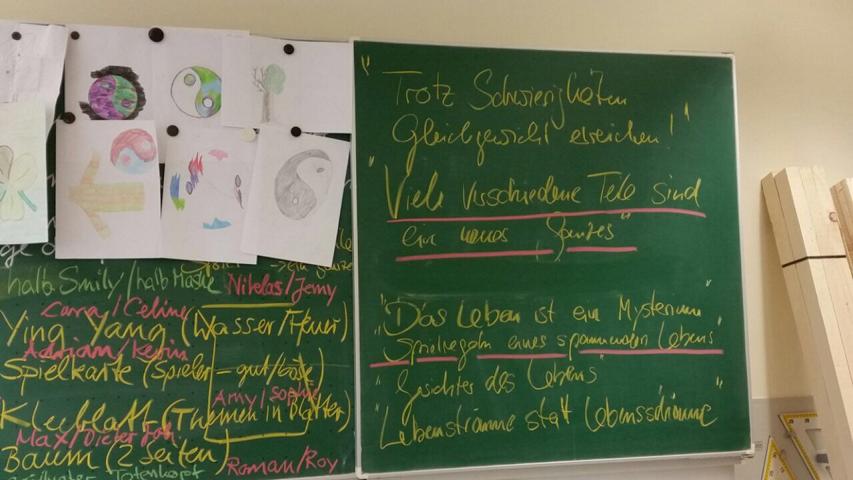 halb Smily/halb Maske Nikolas/Jemy
Carra/Celine
Ying Yang (Wasser/Feuer)
Adrian/Kevin
Spielkarte (Spieler - gut/böse)
Amy/Sophie
Kleeblatt (Themen in Blätter)
Max/Dieter
Baum (2 Seiten) Roman/Roy
Totenkopf
"Trotz Schwierigkeiten
Gleichgewicht erreichen!"
"Viele verschiedene Teile sind
ein neues Ganzes"
"Das Leben ist ein Mysterium"
"Spielregeln eines spannenden Lebens"
"Gesichter des Lebens"
"Lebensträume statt Lebensschäume"